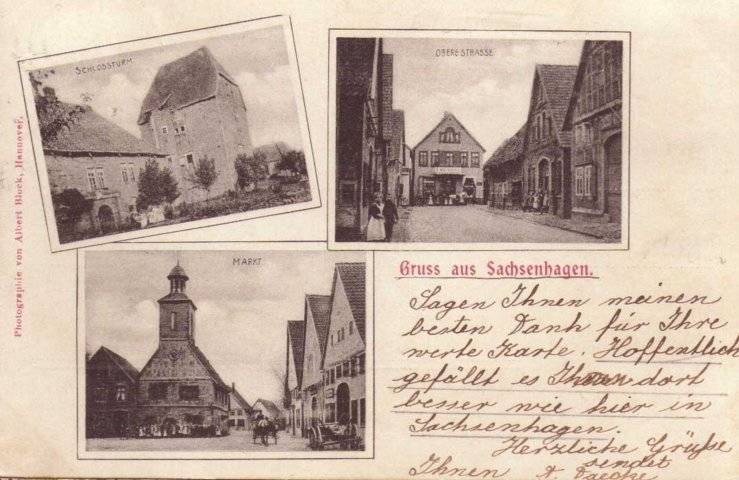 SCHLOSSTURM
OBERE STRASSE
MARKT
Photographie von Albert Block, Hannover.
Gruss aus Sachsenhagen.
Sagen Ihnen meinen
besten Dank für Ihre
werte Karte. Hoffentlich
gefällt es Ihnen dort
besser wie hier in
Sachsenhagen.
Herzliche Grüße
sendet
Ihnen A.